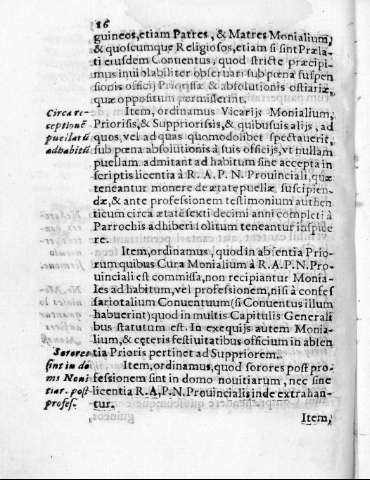 16
guineos, etiam Patres, & Matres Monialium,
& quoscumque Religiosos, etiam si sint Præla-
ti eiusdem Conuentus, quod stricte præcipi-
mus inuiolabiliter obseruari sub pœna suspen
sionis officij Priorissæ & absolutionis ostiariæ,
quæ oppositum permiserint.
Circa re-
ceptionē
puellarū
ad habitū
Item, ordinamus Vicarijs Monialium,
Priorisis, & Suppriorissis, & quibusuis alijs, ad
quos, vel ad quas quomodolibet spectauerit,
sub pœna absolutionis à suis officijs, vt nullam
puellam admitant ad habitum sine accepta in
scriptis licentia à R. A. P. N. Prouinciali, quæ
teneantur monere de ætate puellæ suscipien-
dæ, & ante professionem testimonium authen
ticum circa ætatē sexti decimi anni completi à
Parrochis adhiberi solitum teneantur inspice
re.
Item, ordinamus, quod in absentia Prio-
rum quibus Cura Monialium à R. A. P. N. Pro-
uinciali est commissa, non recipiantur Monia-
les ad habitum, vel professionem, nisi à consef
sariotalium Conuentuum (si Conuentus illum
habuerint) quod in multis Capitulis Generali
bus statutum est. In exequijs autem Monia-
lium, & cęteris festiuitatibus officium in absen
tia Prioris pertinet ad Suppriorem.
Sorores
sint in do
mo Noui
tiar. post
profes.
Item, ordinamus, quod sorores post pro-
fessionem sint in domo nouitiarum, nec sine
licentia R. A. P. N. Prouincialis inde extrahan-
tur.
Item,